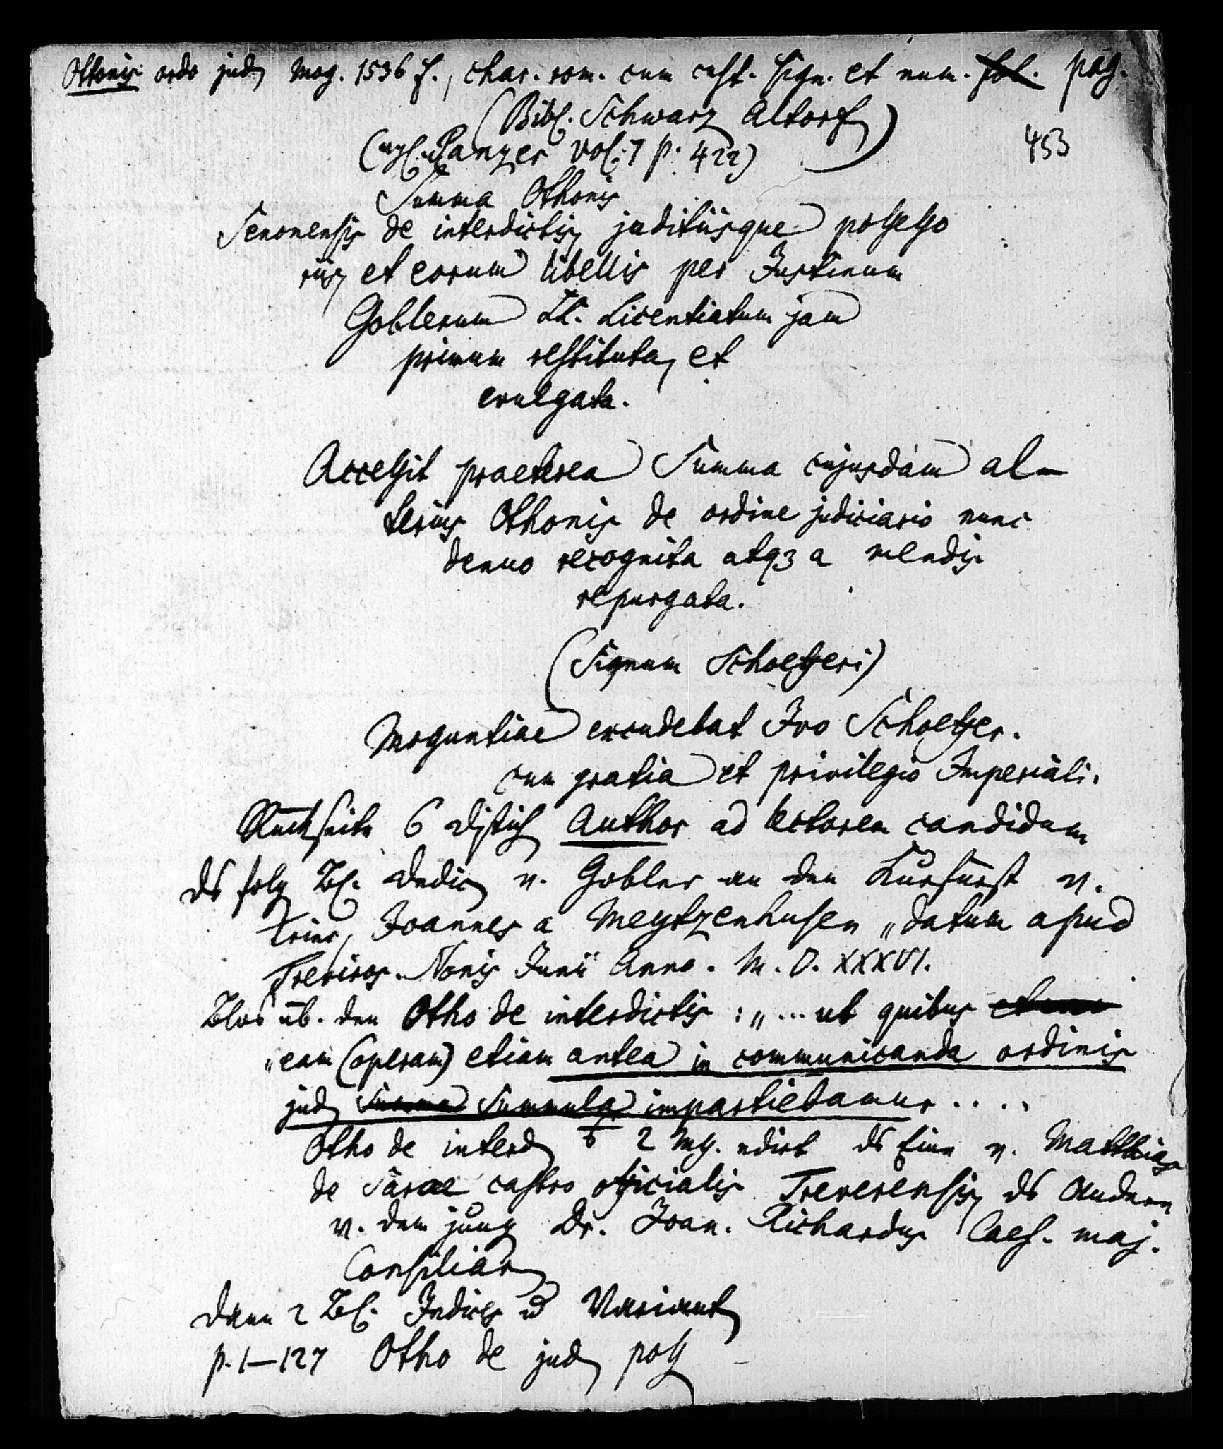 Othonis ordo jud. Mog. 1536 f., char. rom. cum cust. sign. et num. fol. pag.
(Bibl. Schwarz Altorf)
453
(vgl. Panzer vol. 7 p. 422)
Summa Othonis
Senonensis de interdictis juditiisque possesso
riis, et eorum libellis per Justinum
Goblerum LL. Licentiatum jam
primum restituta, et
evulgata.
Accessit praeterea Summa cujusdam al-
terius Othonis de ordine judiciario nunc
denuo recognita atq3 a mendis
repurgata.
(Signum Schoefferi)
Moguntiae excudebat Ivo Schoeffer.
cum gratia et privilegio Imperiali.
Rückseite 6 Distich Author ad lectorem candidum
ds folg Bl. Dedic v. Gobler an den Kurfürst v.
Trier, Joannes a Meytzenhusen „datum apud
Treviros. Nonis Junii Anno. M. D. XXXVI.
Blos üb. den Otho de interdictis : „... ut quibus
„eam (operam) etiam antea in communicanda ordinis
jud. Summa Summula impartiebamur . . . .
Otho de interd 2 edirt ds Eine v. Matthias
de Sarae castro officialis Treverensis, ds Andere
v. dem jung Dr. Joan. Richardus Caes. maj.
Consiliar
Dann 2 Bl. Indices u Variant
p. 1—127 Otho de jud poss